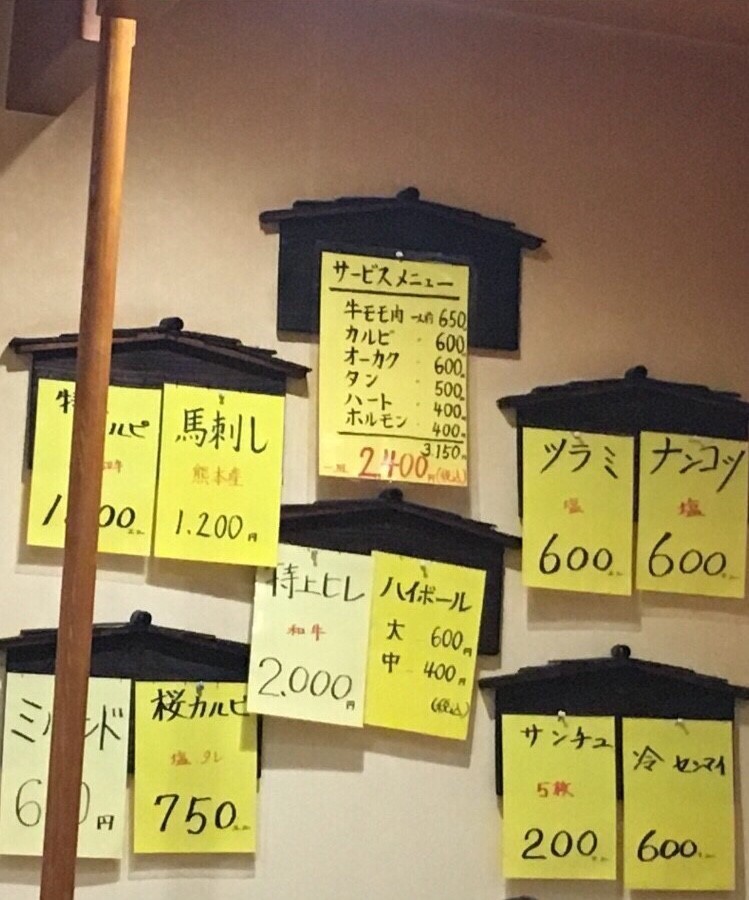 サービスメニュー
牛モモ肉 一人前 650
カルビ 〃 600
オーカク 〃 600
タン 〃 500
ハート 〃 400
ホルモン 〃 400
3,150
2,400円(税込)
特 ルビ
和牛
馬刺し
熊本産
1,200円
ツラミ
塩
600
ナンコツ
塩
600
特上ヒレ
和牛
2,000円
ハイボール
大 600円
中 400円
(税込)
ミ ンド
円
桜カルビ
塩 タレ
750
サンチュ
5枚
200
冷 センマイ
600